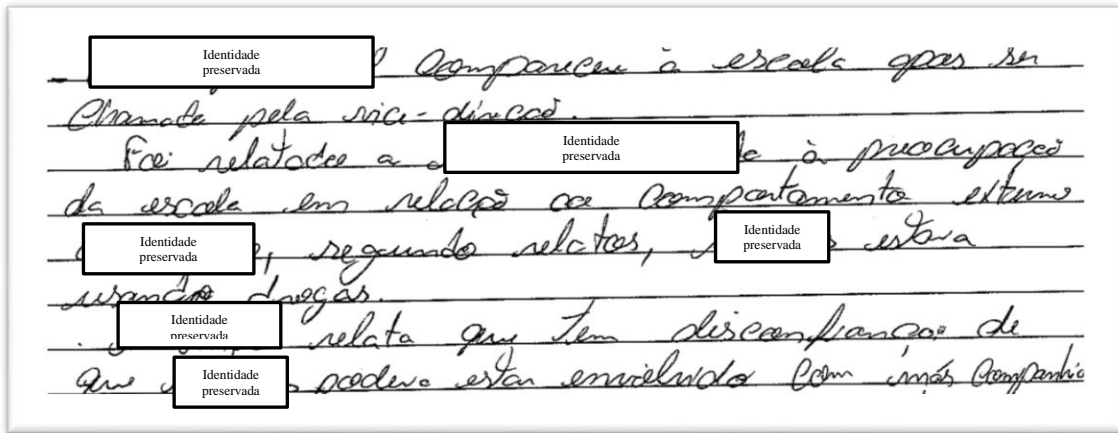 Identidade preservada compareceu à escola após ser
chamada pela vice-direção.
Foi relatado a Identidade preservada à preocupação
da escola em relação ao comportamento externo
Identidade preservada, segundo relatos, Identidade preservada estava
usando drogas.
Identidade preservada relata que tem desconfiança de
que Identidade preservada poderia estar envolvido com más companhia